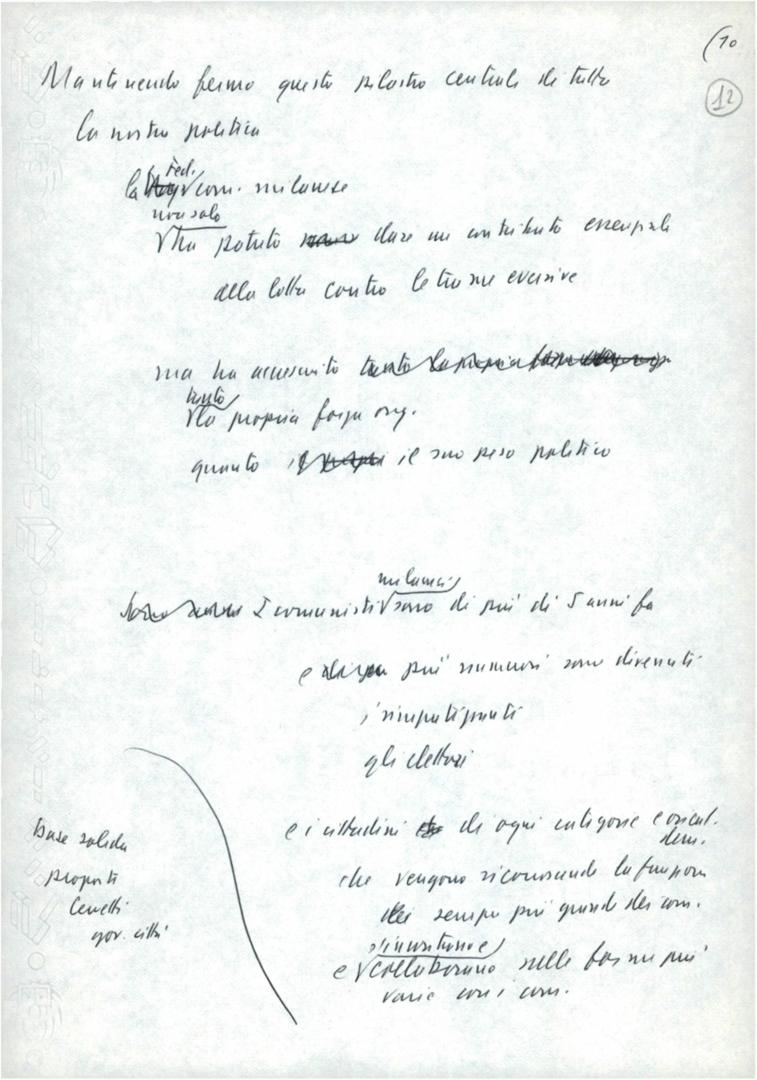 (10
12
Mantenendo fermo questo pilastro centrale di tutta
la nostra politica
Fed.
la com. milanese
non solo
ha potuto dare un contributo essenziale
alla lotta contro le trame eversive
ma ha accresciuto tanto la propria
tanto
la propria forza org.
quanto il suo peso politico
milanesi
I comunisti sono di più di 5 anni fa
e più numerosi sono divenuti
i simpatizzanti
gli elettori
e i cittadini di ogni categoria e orient.
dem.
che vengono riconoscendo la funzione
sempre più grande dei com.
s'incontrano
e collaborano nelle forme più
varie con i com.
base solida
proposti
Cervetti
gov. città